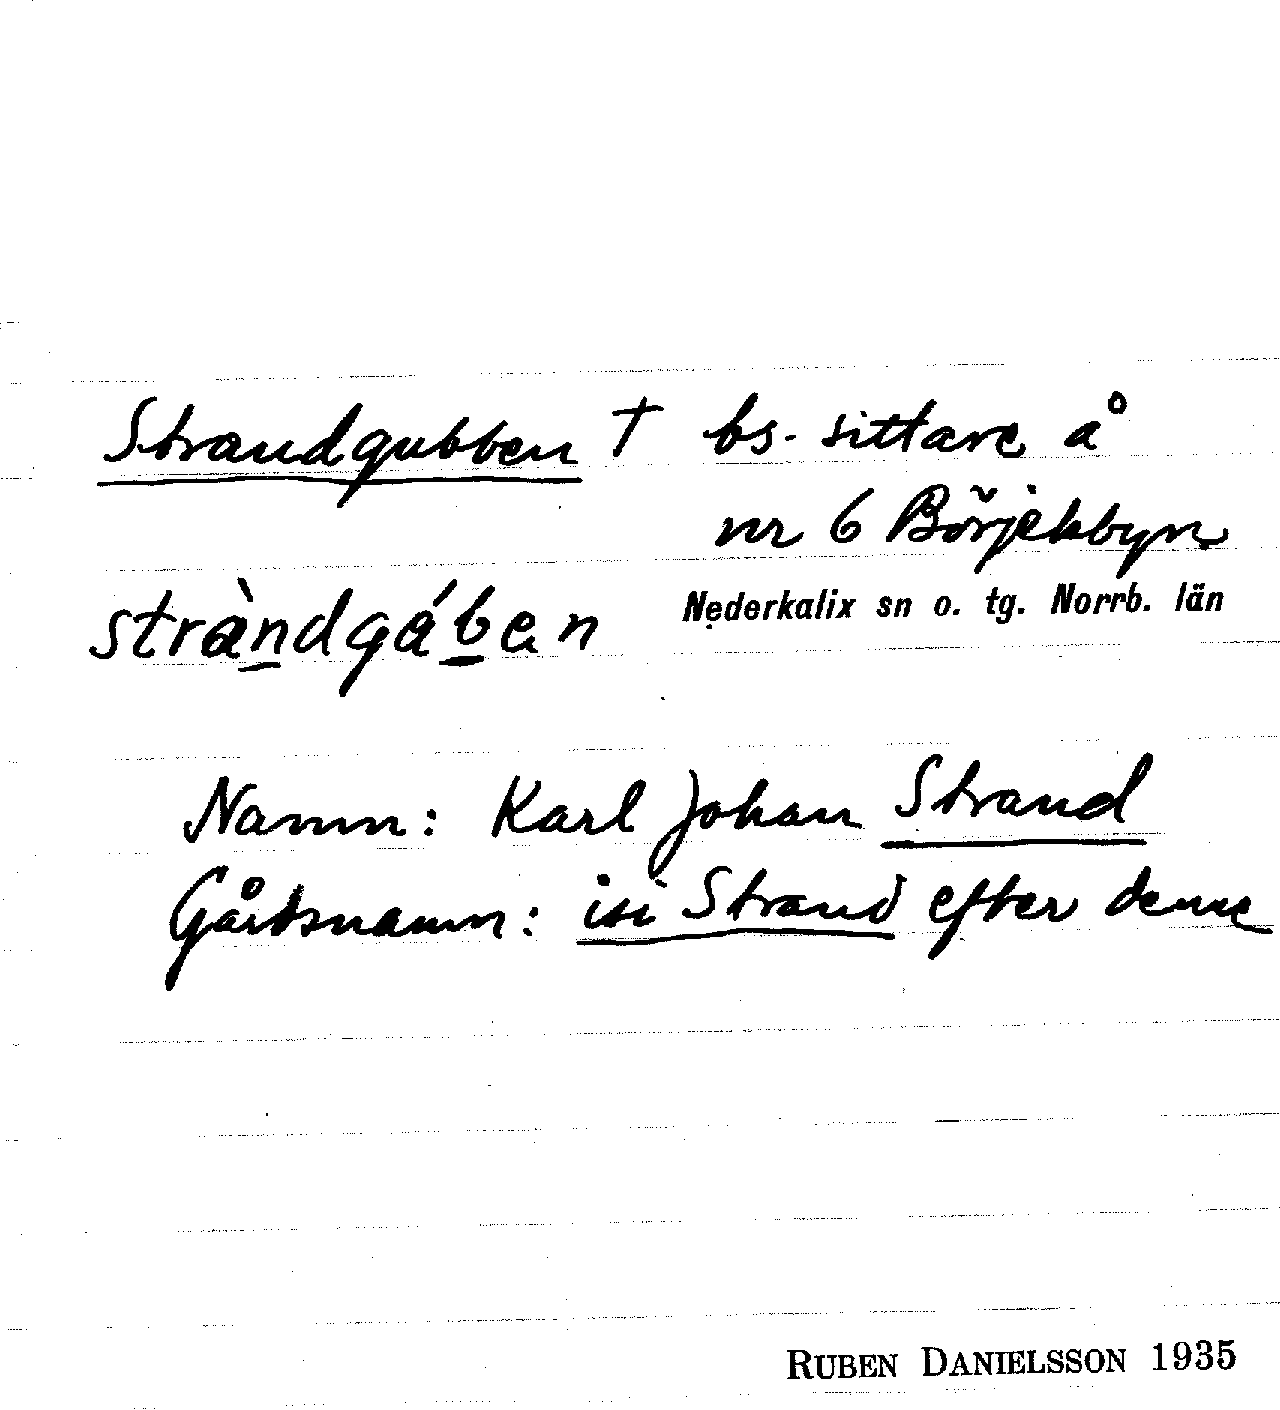 Strandgubben † bs. sittare å
nr 6 Börjelsbyn
Nederkalix sn o. tg. Norrb. län
stràndgá́ben
Namn: Karl Johan Strand
Gårdsnamn: isi Strand efter denne
RUBEN DANIELSSON 1935